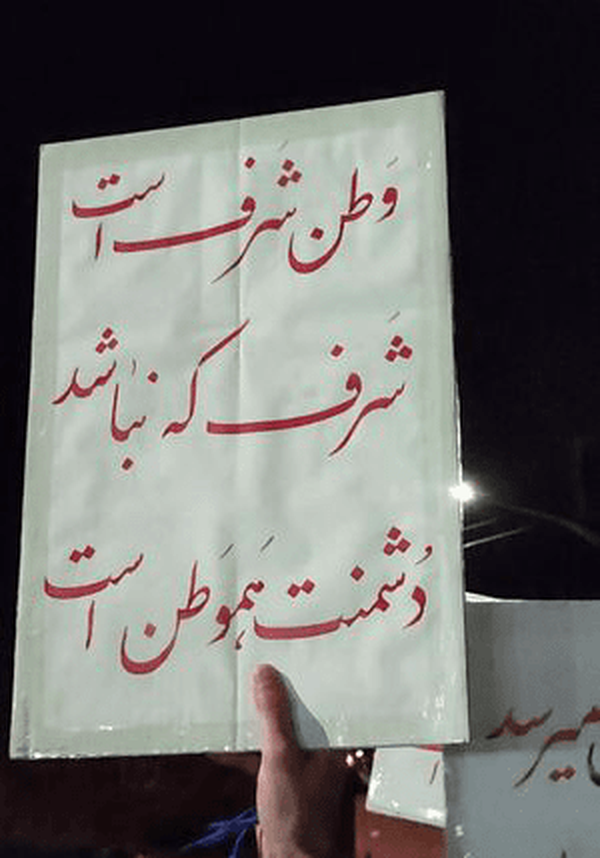 وَطن شَرف است
شَرف که نباشد
دُشمنت هَموَطن است
میرسد